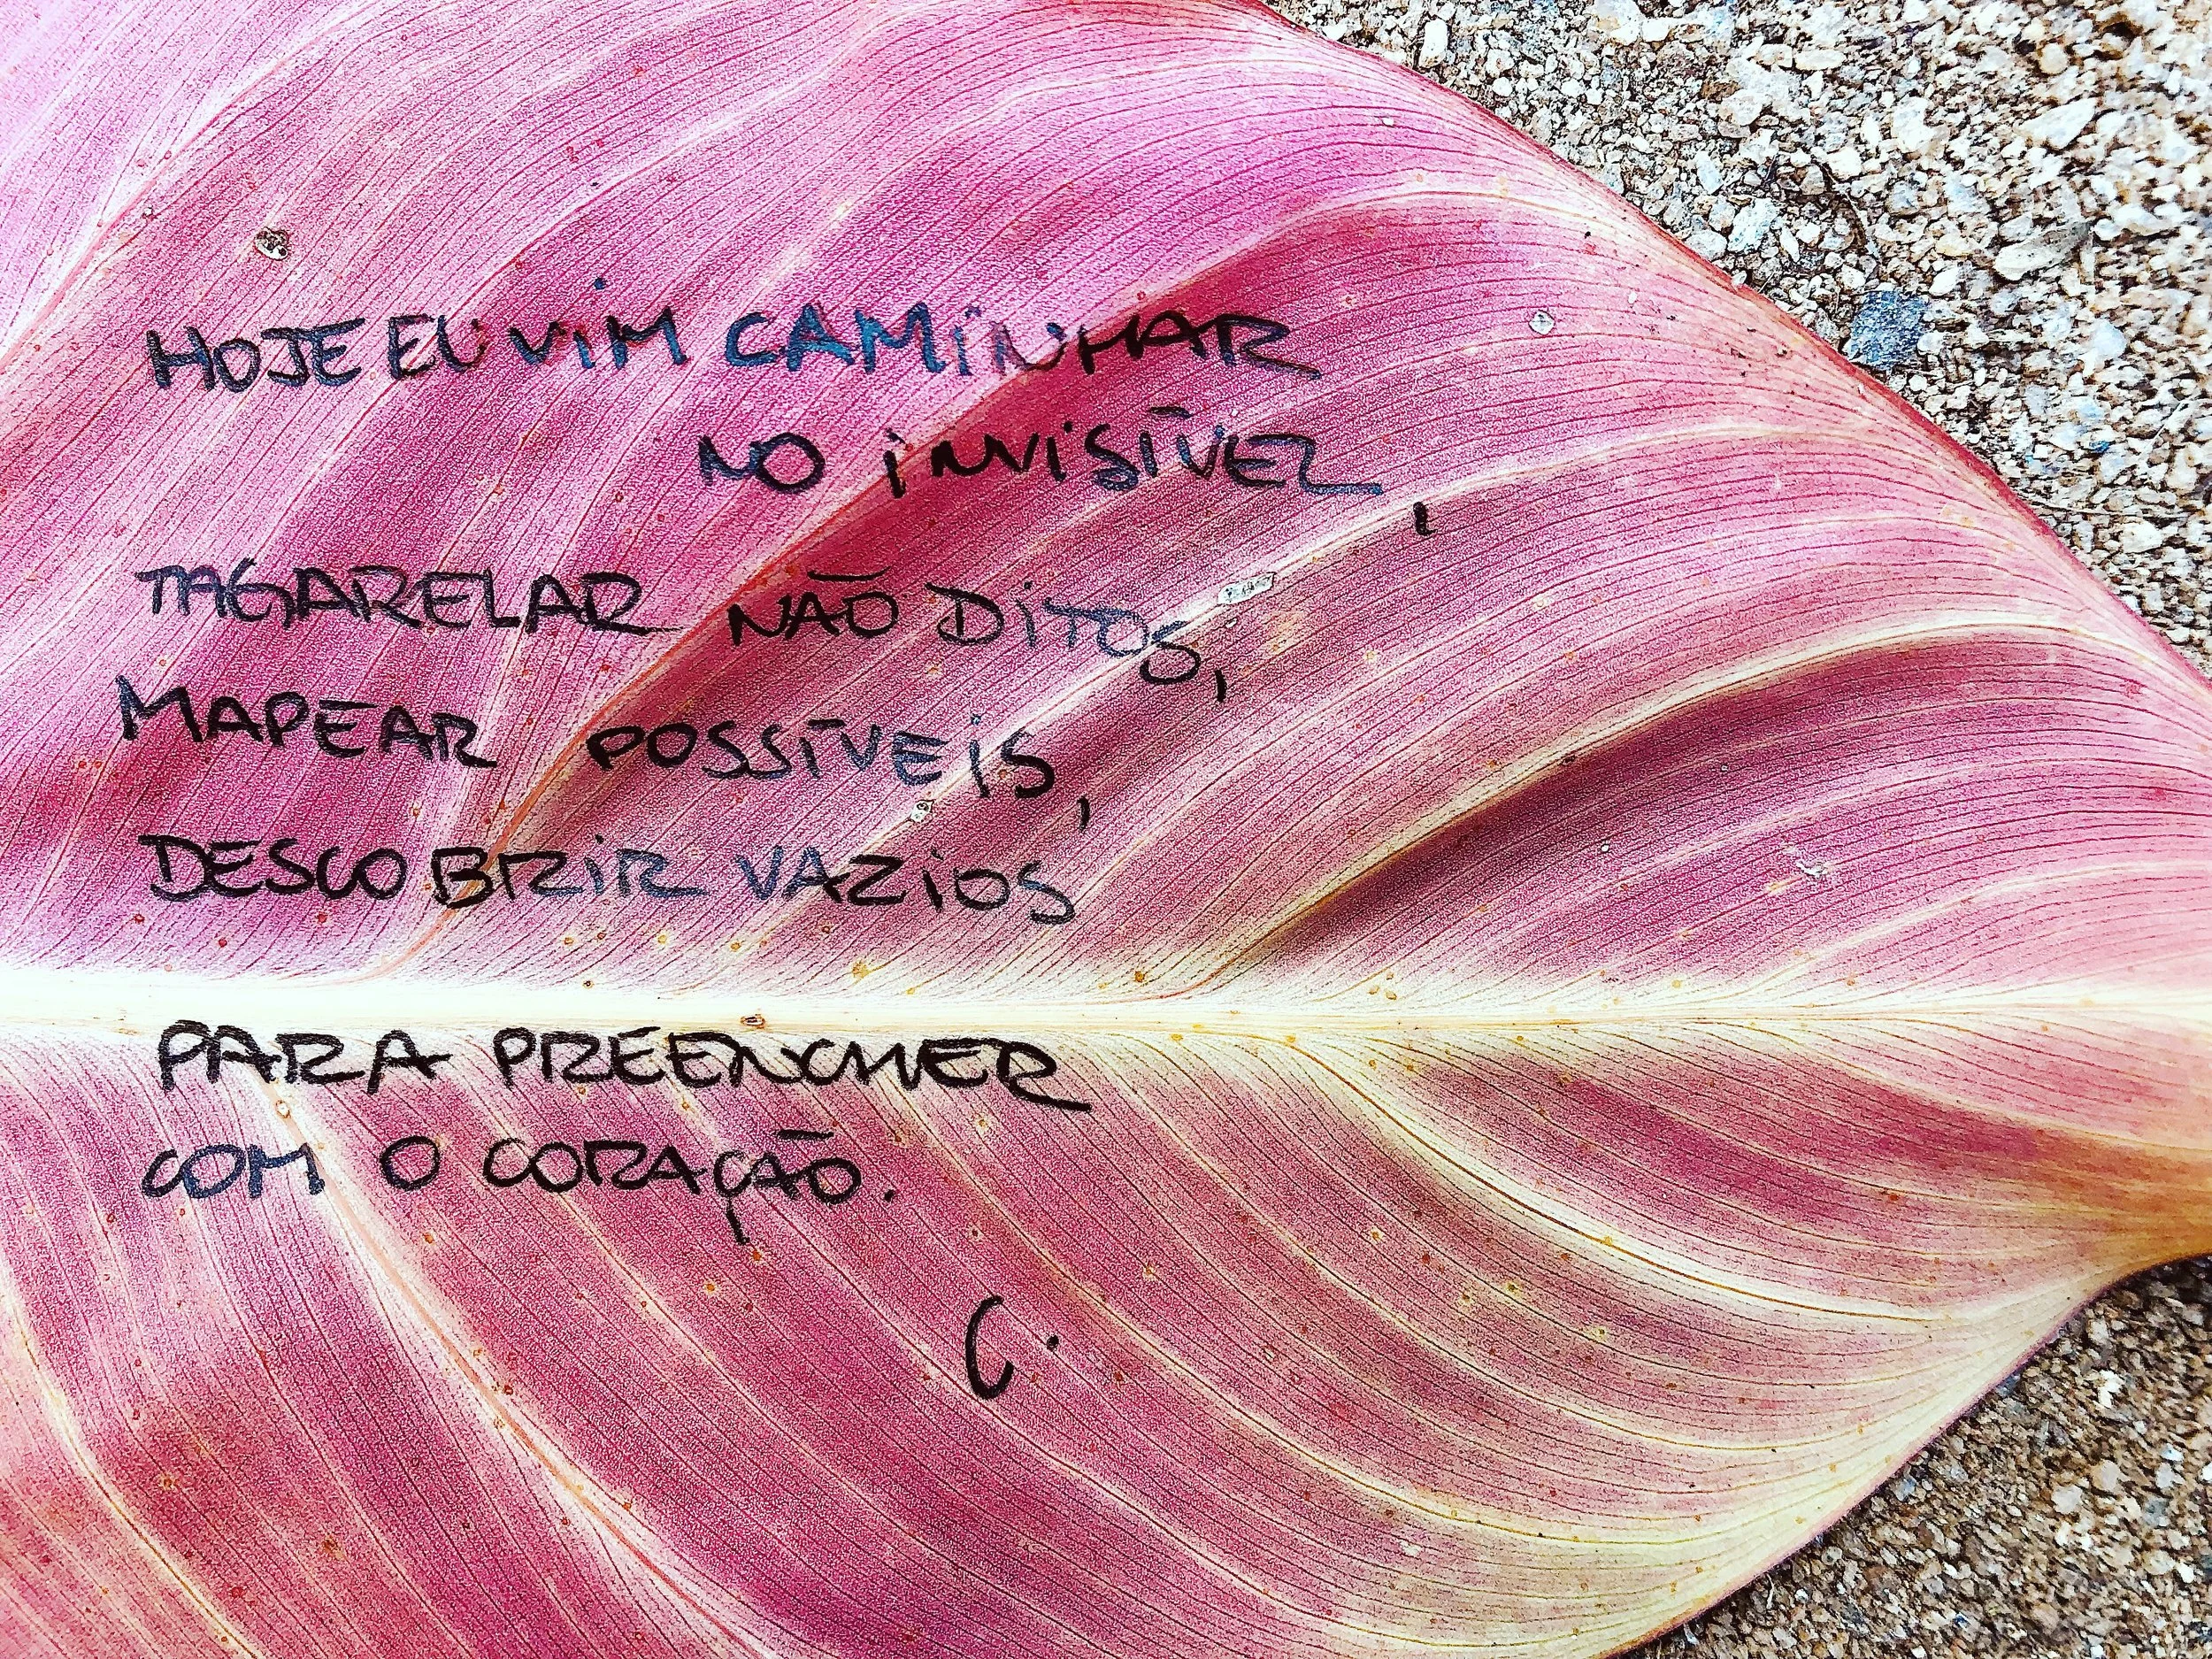 HOJE EU VIM CAMINHAR
NO INVISÍVEL,
TAGARELAR NÃO DITOS,
MAPEAR POSSÍVEIS,
DESCOBRIR VAZIOS
PARA PREENCHER
COM O CORAÇÃO.
C.